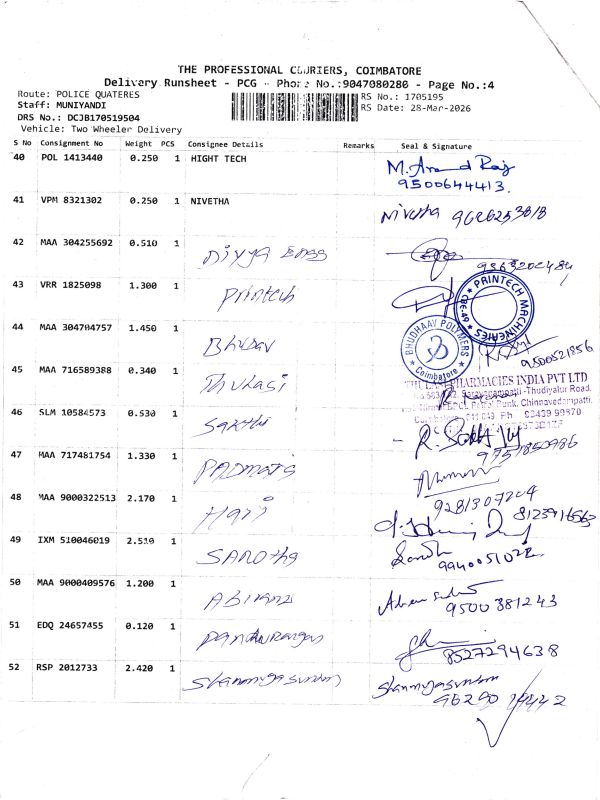 THE PROFESSIONAL COURIERS, COIMBATORE
Delivery Runsheet - PCG - Phone No.:9047080280 - Page No.:4
Route: POLICE QUATERES
RS No.: 1705195
Staff: MUNIYANDI
RS Date: 28-Mar-2026
DRS No.: DCJB170519504
Vehicle: Two Wheeler Delivery
S No Consignment No Weight PCS Consignee Details Remarks Seal & Signature
40 POL 1413440 0.250 1 HIGHT TECH M. Anand Raj
9500644413.
41 VPM 8321302 0.250 1 NIVETHA Nivetha
42 MAA 304255692 0.510 1 Divya Engg
43 VRR 1825098 1.300 1 Printech
PRINTECH MACHINERIES
44 MAA 304704757 1.450 1 Bhudav
BHUDHAAV POLYMERS
Coimbatore
9500521856
45 MAA 716589388 0.340 1 Thulasi
PHARMACIES INDIA PVT LTD
46 SLM 10584573 0.530 1 Sakthi
9751850986
47 MAA 717481754 1.330 1 Padmaja
9281307204
48 MAA 9000322513 2.170 1 Hari
8123916563
49 IXM 510046019 2.510 1 Sandhya
50 MAA 9000409576 1.200 1 Abirami
9500381243
51 EDQ 24657455 0.120 1 Pandurangan
8527294638
52 RSP 2012733 2.420 1 Shanmugasundaram Shanmugasundaram